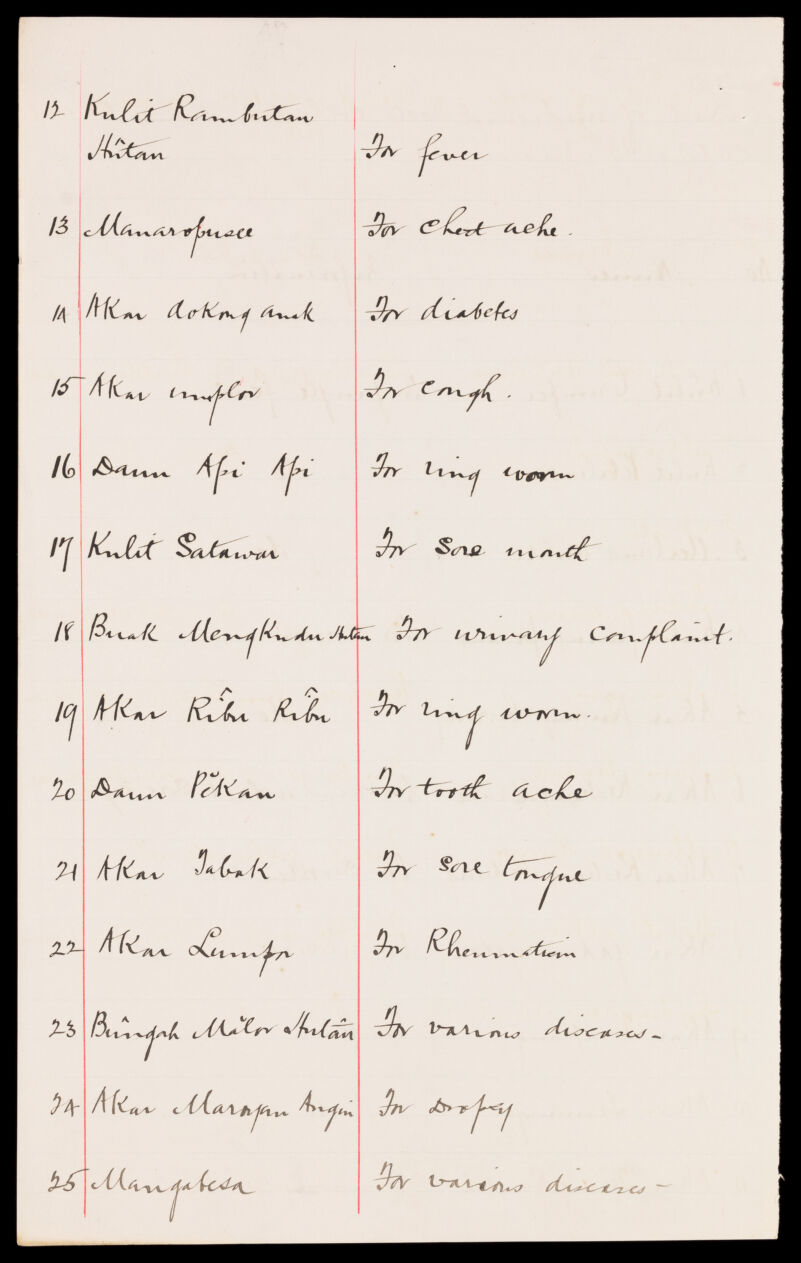 12 Kulit Rambutan
Hûtan For fever
13 Manaropusee For chest ache.
14 Akar dokong anak For diabetes
15 Akar For cough.
16 Daun Api Api For ring worm
17 Kulit Satawar For Sore mouth
18 Buak Mengkudu Hutan For urinary complaint.
19 Akar Rîbu Rîbu For ring worm.
20 Daun Pĕkan For tooth ache
21 Akar Tabak For Sore tongue
22 Akar Lumpor For Rheumatism
23 Bûngah Mâlor Hutân For various diseases-
24 Akar Maroyan Angin For Dropsy
25 Mangabesa For various diseases-